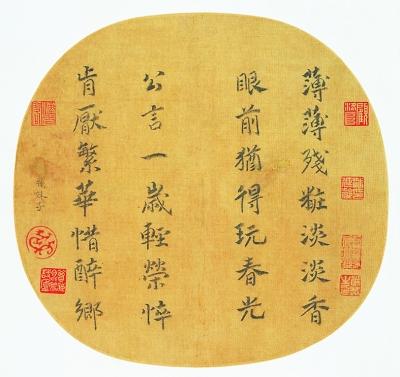 薄薄殘粧淡淡香
眼前猶得玩春光
公言一歲輕榮悴
肯厭繁華惜醉鄉